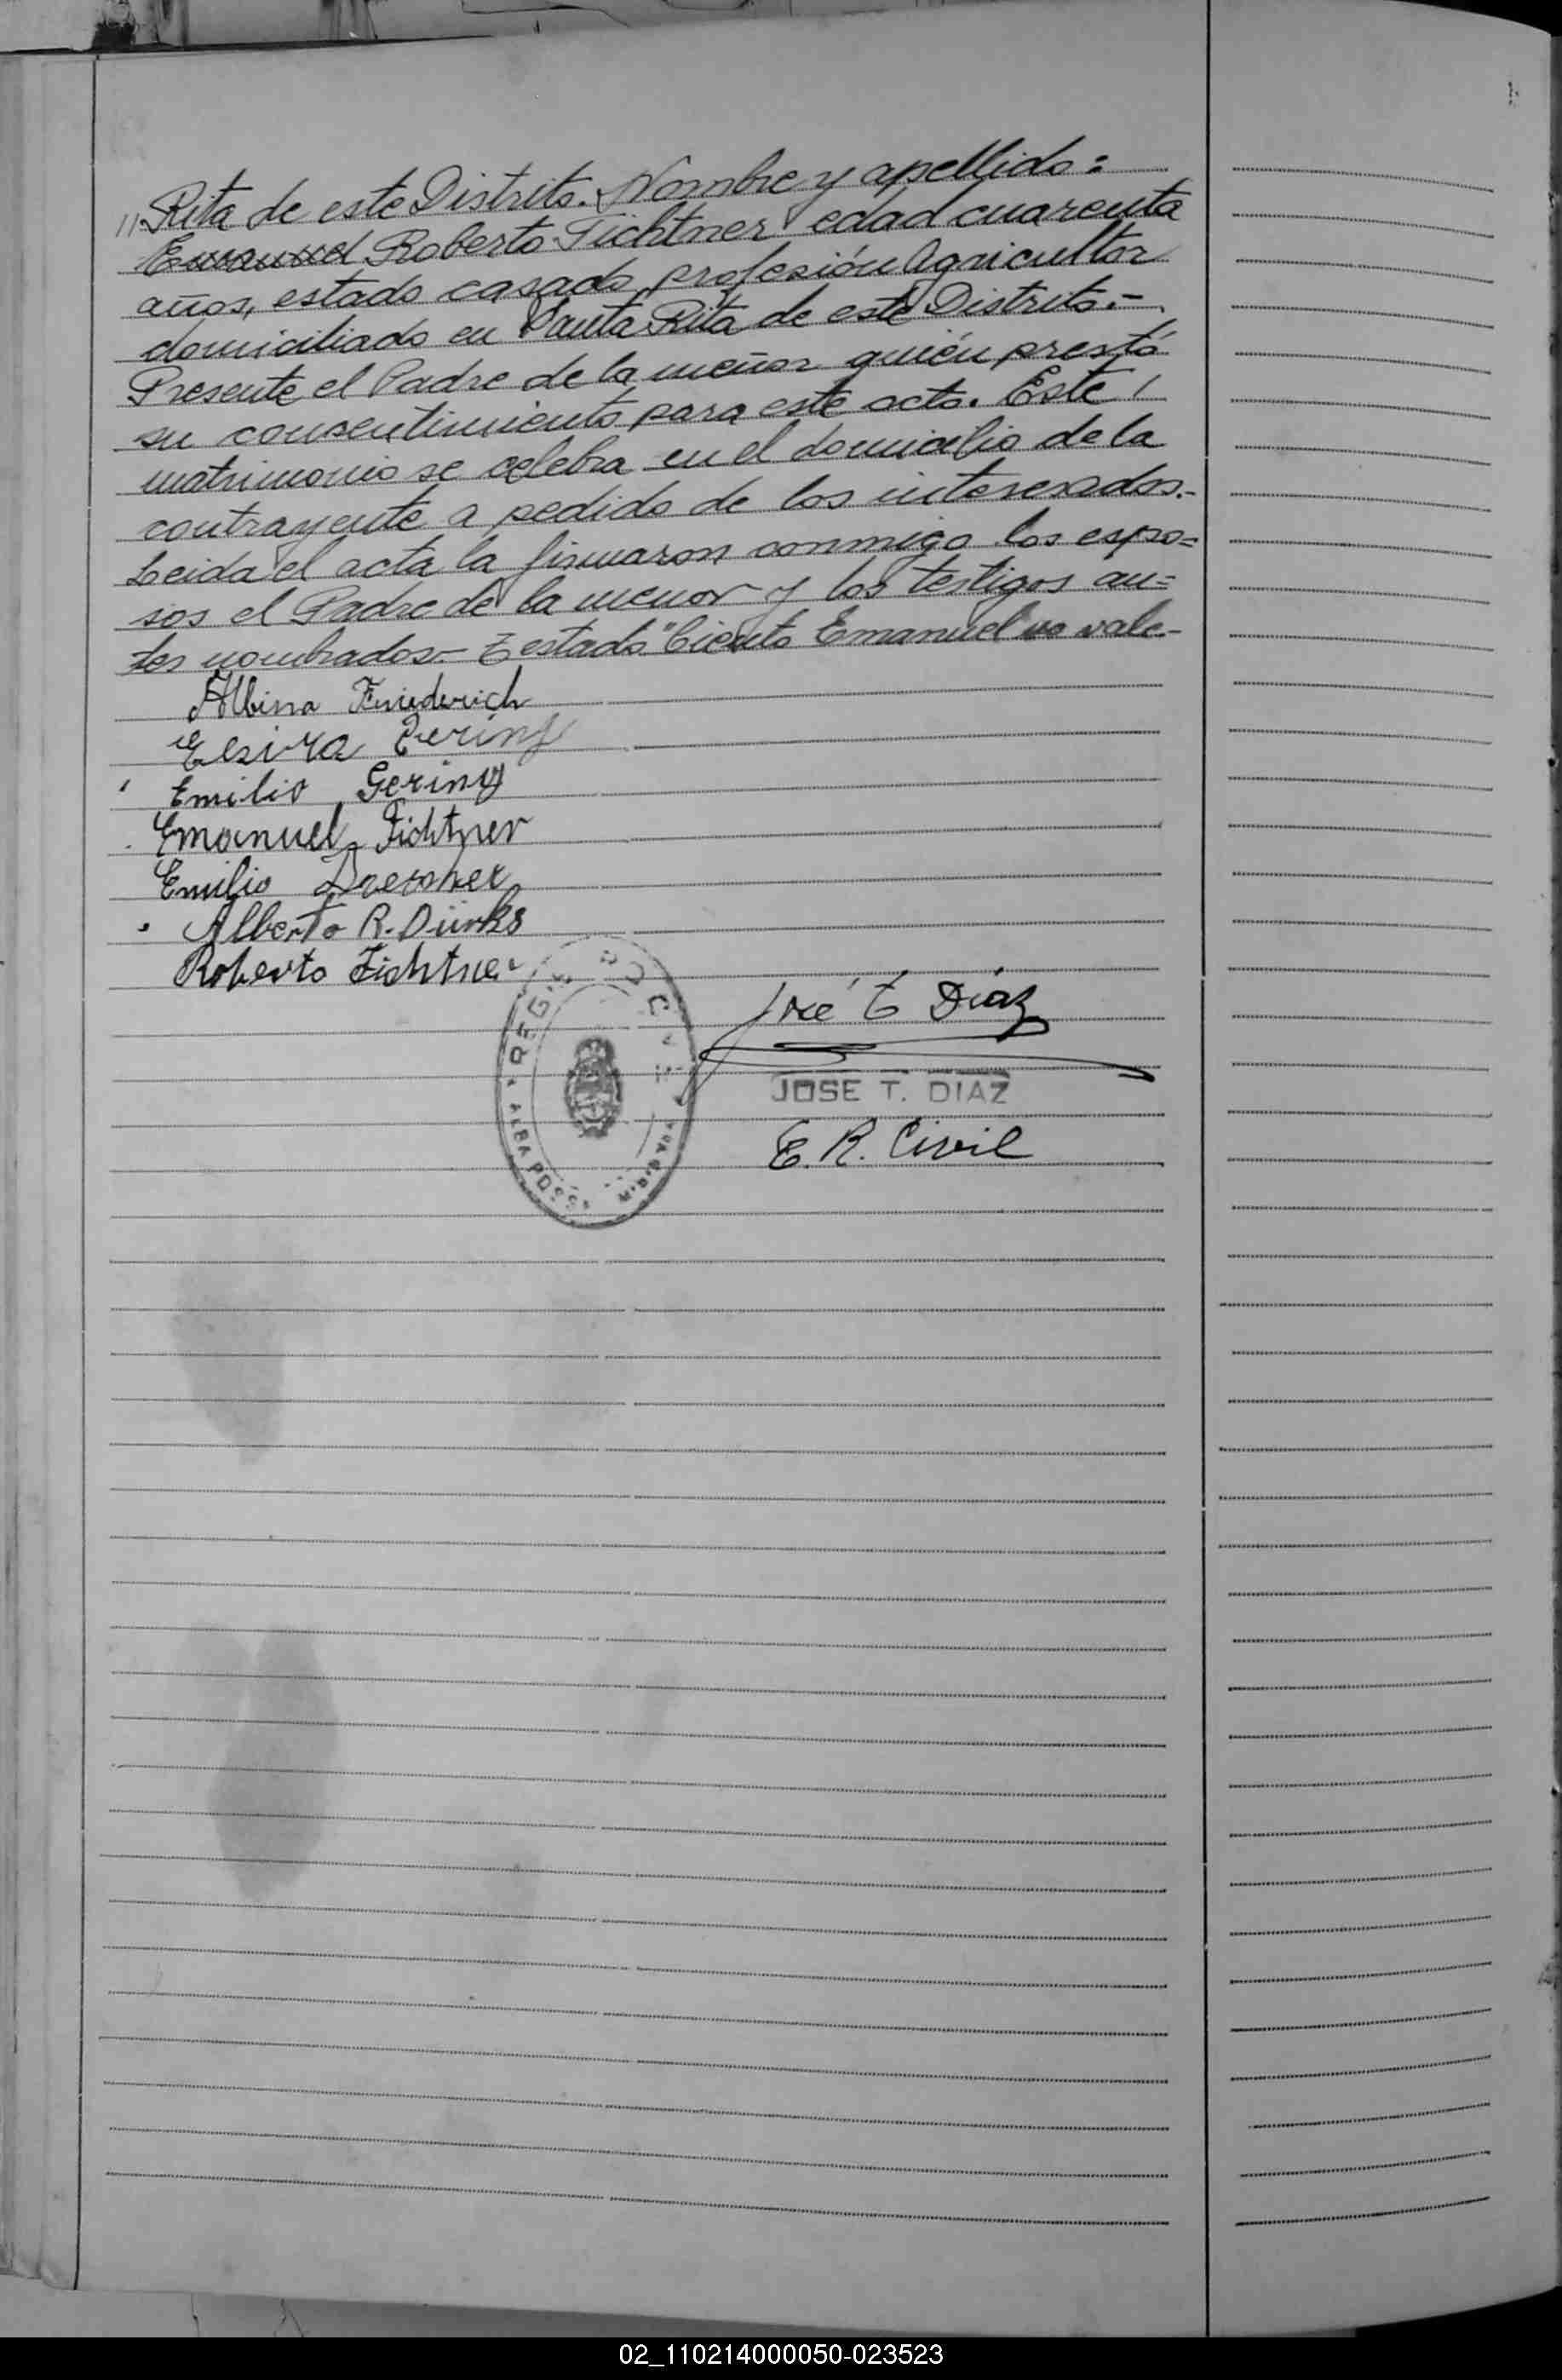 "Rita de este Distrito. Nombre y apellido:
Emanuel Roberto Fichtner edad cuarenta
años, estado casado, profesión Agricultor
domiciliado en Santa Rita de este Distrito.-
Presente el Padre de la menor quién prestó
su consentimiento para este acto. Este
matrimonio se celebra en el domicilio de la
contrayente a pedido de los interesados.-
Leida el acta la firmaron conmigo los espo=
sos el Padre de la menor y los testigos an=
tes nombrados.- Testado "Ciento Emanuel no vale.-
Albino Friederich
Elvira Gering
Emilio Gering
Emanuel Fichtner
Emilio Drescher
Alberto R. Dürks
Roberto Fichtner
José T Díaz
JOSE T. DIAZ
E. R. Civil
REGISTRO CIVIL
ALBA POSSE
02_110214000050-023523